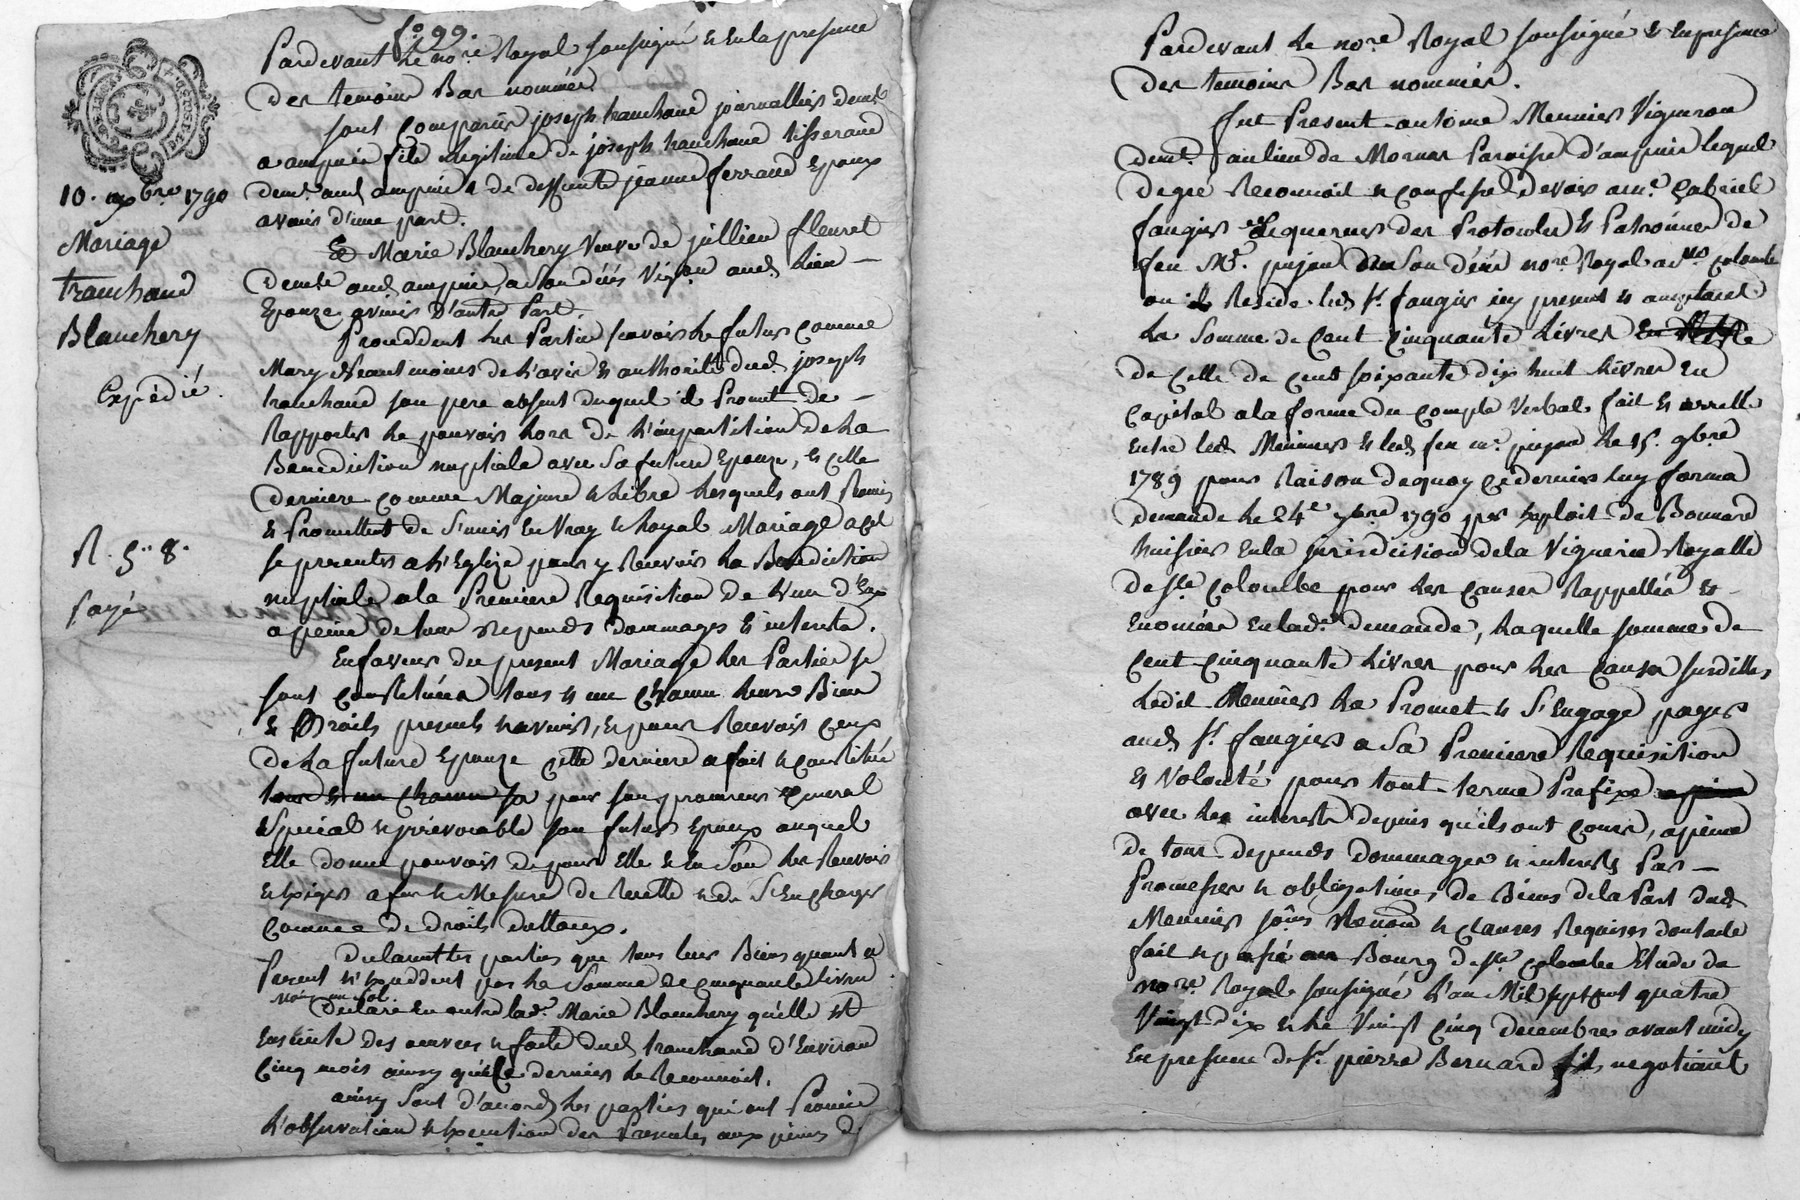 fo. 99.
Pardevant Le nore. Royal soussigné & en la presence
des temoins Bas nommés
sont Comparus joseph tranchand journallier demt.
a ampuis fils Legitime de joseph tranchand tisserand
demt. aud. ampuis & de deffunte jeanne ferrand Epoux
avenir d'une part.
Et Marie Blanchery Veuve de jullien fleuret
demte aud. ampuis, a son décés Vigon aud. Lien
Epouze avenir D'autre Part.
Procèddent Les Parties scavoir Le futur Comme
Mary Neantmoins de L'avis & authorité dud. joseph
tranchand son pere absent duquel il Promet de
Rapporter Le pouvoir Lors de L'impartition de La
Benediction nuptiale avec Sa future Epouze, & cette
derniere Comme Majeure & Libre Lesquels ont Promis
& Promettent de S'unir En Vray & Loyal Mariage a cet
se presenter a L'Eglize pour y Recevoir La Benediction
nuptiale a la Premiere Requisition de L'un d'Eux
a peine de tous depends dommages & interets.
En faveur du present Mariage Les Parties se
sont Constituées tous & un chacun Leurs Biens
& Droits presents & avenir, & pour Recevoir Ceux
de La future Epouze Cette derniere a fait & Constitué
tous & un chacun sa pour son procureur General
Special & irrevocable son futur Epoux auquel
Elle donne pouvoir de pour Elle & En Son Les Recevoir
Exiger a fur & Mesure de Recette & de S'En Charger
Comme de droits dottaux.
Declarent Les parties que tous leurs Biens quant a
Present N'Exceddent pas La Somme de cinquante Livres
Declare En outre lade. Marie Blanchery qu'elle est
Enceinte des œuvres & faits dud. tranchand d'Environ
Cinq mois ainsy que Ce dernier Le Reconnoit.
ainsy Sont d'accord Les parties qui ont Promis
L'observation & Execution des Presentes aux peines de
10. xbre 1790
Mariage
tranchand
Blanchery
Expédié.
R. 5.. 8.
payé
Pardevant Le nore. Royal soussigné & En presence
des temoins Bas nommés.
fut Present antoine Meunier Vigneron
demt. au lieu de Mornas Paroisse d'ampuis lequel
de gré Reconnoit & Confesse devoir a mr. Gabriel
faugier acquereur des Protocoles & Patronnes de
feu Mr. pujon a Son décés nore. Royal a Ste Colombe
ou il Reside. led. Sr. faugier icy present & acceptant
La Somme de Cent Cinquante Livres En Reste
de Celle de Cent soixante dix huit Livres En
Capital a la forme du Compte Verbal fait & arretté
Entre led. Meunier & led. feu mr. pujon Le 15. 9bre
1789 pour Raison de quoy Ce dernier luy forma
demande Le 24e 7bre 1790 par Exploit de Bonnard
huissier En la jurisdiction de la Viguerie Royalle
de Ste Colombe pour Les Causes Rappellés &
Enoncées En lade. demande, Laquelle somme de
Cent Cinquante Livres pour Les Causes susdittes
Ledit Meunier La Promet & S'Engage payer
aud. Sr. faugier a Sa Premiere Requisition
& Volonté pour tout terme Prefixe a peine
avec Les interets depuis qu'ils ont Couru, a peine
de tous depends dommages & interets Par
Promesses & obligations, de Biens de la Part dud.
Meunier soûms Renonc & clauses Requises dont acte
fait & passé au Bourg de Ste Colombe Etude du
nore. Royal soussigné L'an Mil sept cent quatre
Vingt dix & Le Vingt Cinq decembre avant midy
En presence de Sr. pierre Bernard fils negotiant